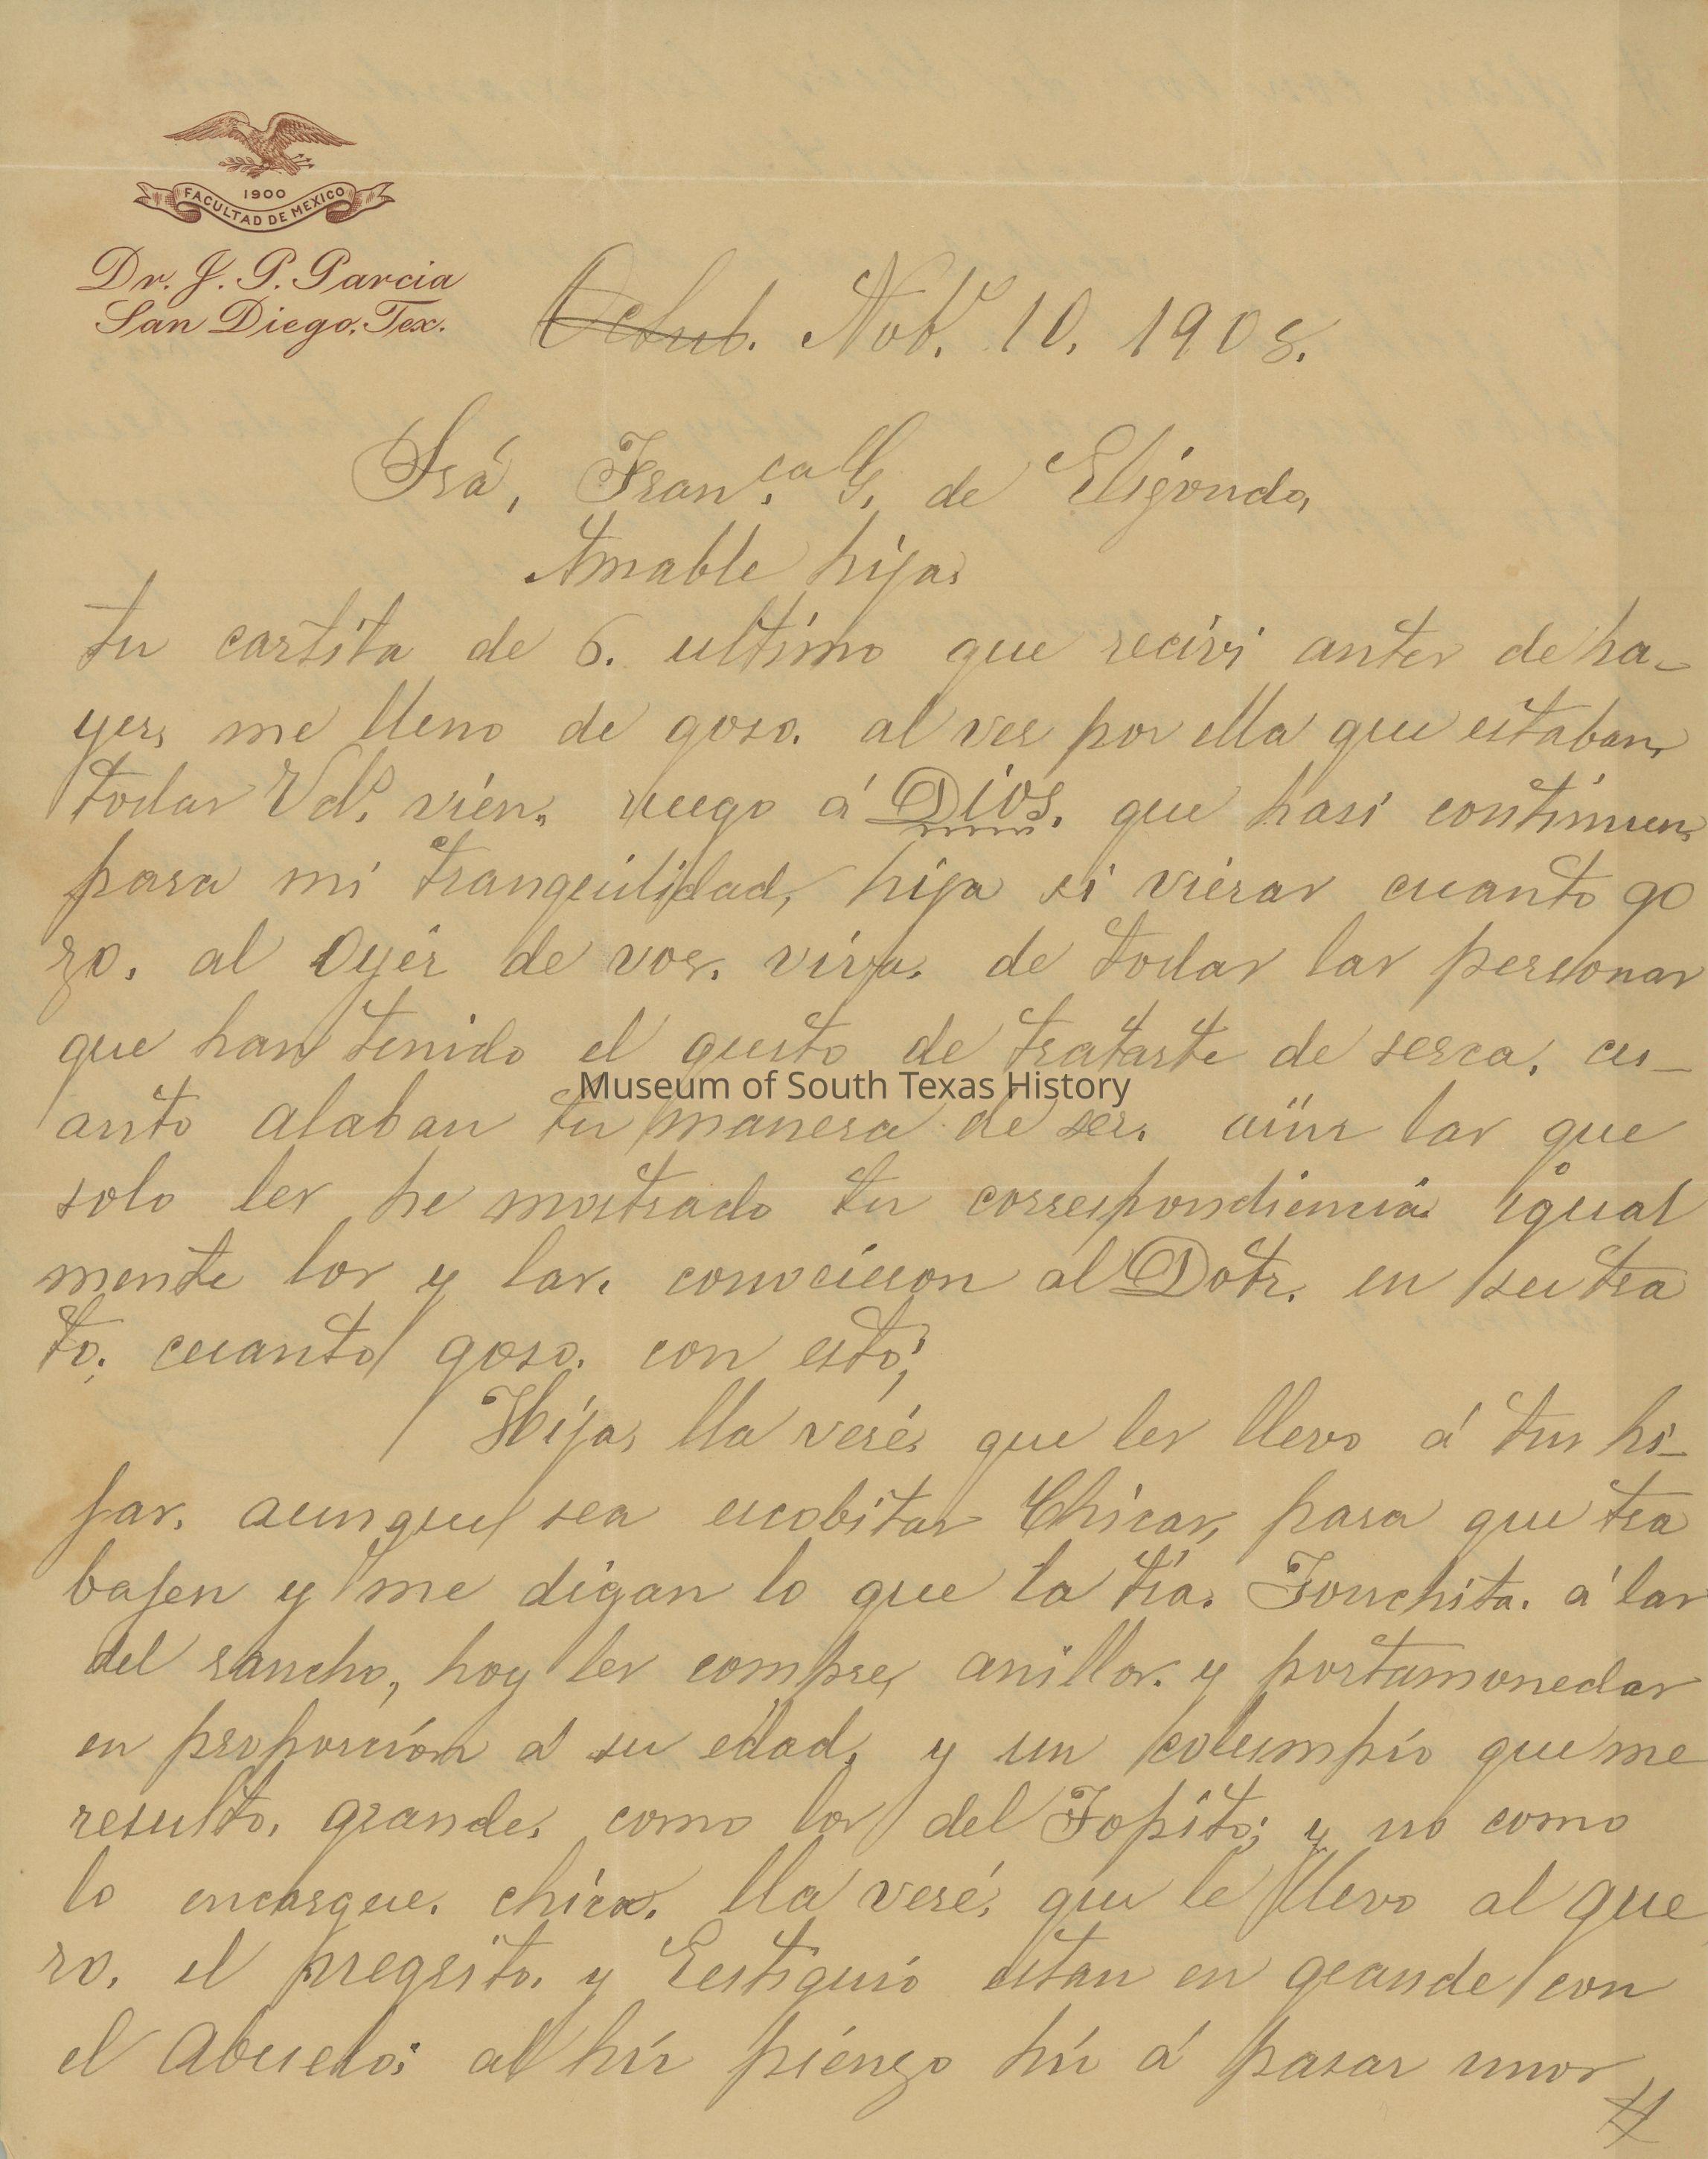 1900
FACULTAD DE MEXICO
Dr. J. P. Garcia
San Diego, Tex.
Octub. Nob.e 10, 1908.
Srá, Fran.ca G. de Elijondo,
Amable hija,
tu cartita de 6. ultimo que recivi antes de ha-
yer, me lleno de goso. al ver por ella que estaban,
todas Vds. vien, ruego á Dios. que hasi continuen,
para mi tranquilidad, hija si vieras cuanto go
zo. al Oyér de vos. viva. de todas las personas
que han tenido el gusto de tratarte de serca, cu-
anto alaban tu manera de ser, aün las que
solo les he mostrado tu correspondiencia igual
mente los y las. conocieron al Dotr. en su tra
to, cuanto goso. con esto;
Hija, lla veré, que les llevo á tus hi-
jas, aunque sea escobitas Chicas, para que tra
bajen y me digan lo que la tia. Fonchita. á las
del rancho, hoy les compre, anillos. y portamonedas
en proporción a su edad, y un columpio que me
resulto, grande, como los del Fopito; y no como
lo encargue. chico. lla veré, que le llevo al que
ro. el negrito. y Eustiquio estan en grande con
el Abuelo; al hir piengo hir á pasar unos